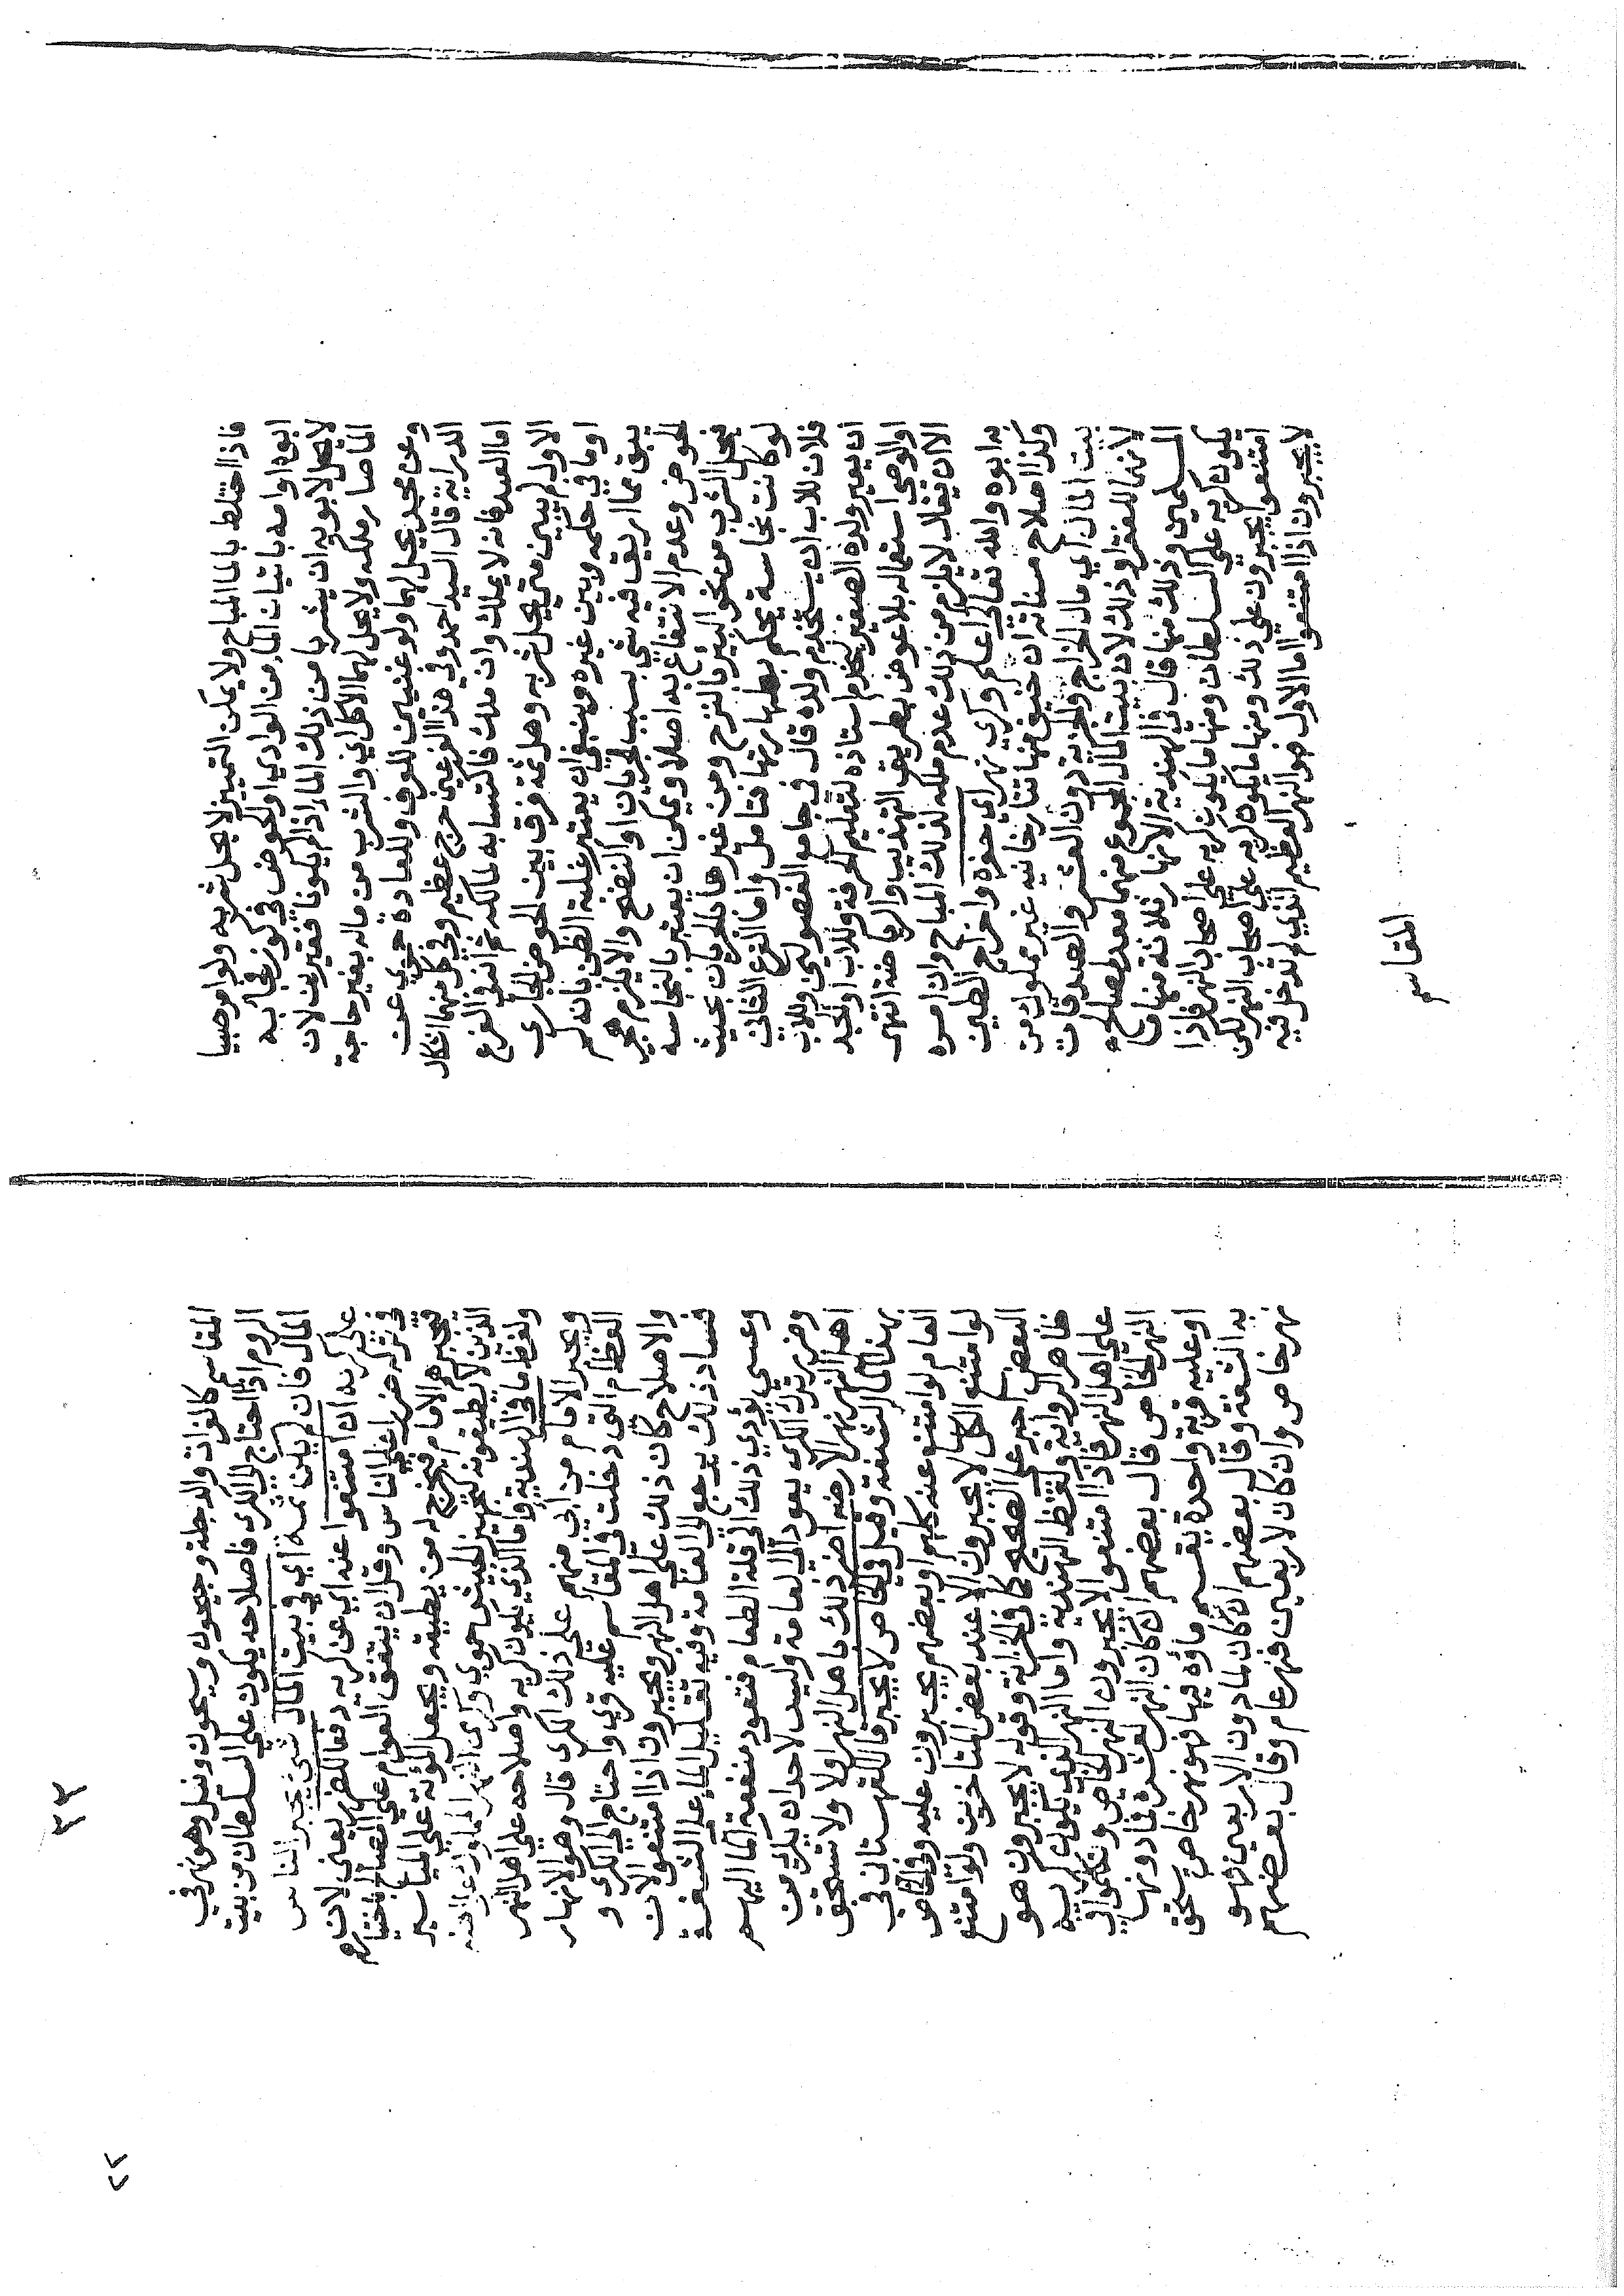 فاذا اختلط بالماء المباح ولا يمكن التمييز لا يحل شربه ولو امر صبيا
ابوه او امه باتيان الماء من الوادي او الحوض في كوز فجاء به
لا يحل لابويه ان يشربا من ذلك الماء اذا لم يكونا فقيرين لان
الماء صار ملكه ولا يحل لهما الاكل اي والشرب من ماله بغير حاجة
وعن محمد يحل لهما ولو غنيين للعرف وللعادة حموي عن
الدراية قال السيد احمد وفي هذا الفرعين حرج عظيم وفي كل منهما اشكال
اما العبد فانه لا يملك وان ملك فاكتسابه لمالكه ثم انه في الفرع
الاول لم يبين متى يحل شربه وهل ثمة فرق بين الحوض الجاري
او ما في حكمه وبين غيره وينبغي ان يعتبر غلبة الظن بانه لم
يبق مما اريق فيه شيء بسبب الجريان او النضح والا يلزم هجر
الحوض وعدم الانتفاع به اصلا ويمكن ان يعتبر بالنجاسة
فيحل الشرب من نحو البئر بالنزح ومن غيرها بالجريان بحيث
لو كانت نجاسة يحكم بطهارتها فتامل واما الفرع الثاني
فلان للاب ان يستخدم ولده قال في جامع الفصولين وللاب
ان يعير ولده الصغير ليخدم استاذه لتعليم الحرفة وللاب او الجد
او الوصي استعماله بلا عوض بطريق التهذيب والرياضة انتهى
الا ان يقال لا يلزم من ذلك عدم ملكه لذلك المباح وان امره
به ابوه والله تعالى اعلم وكري نهر اي حفره واخراج الطين
وكذا اصلاح مسناته ان خيف منها تتارخانيه غير مملوك من
بيت المال اي مال الخراج والجزية دون العشر والصدقات
لانهما للفقراء وذلك لان بيت المال المجموع منهما معد لمصالح
المسلمين وذلك منها قال في الهندية الانهار ثلاثة منها ما
يكون كريه على السلطان ومنها ما يكون كريه على اصحاب النهر فاذا
امتنعوا يجبرون على ذلك ومنها ما يكون كريه على اصحاب النهر لكن
لا يجبرون اذا امتنعوا اما الاول هو النهر العظيم الذي لم تدخل فيه
المقاسم
٢٣
المقاسم كالفرات والدجلة وجيحون وسيحون ونيل وهو نهر في
الروم اذا احتاج الى الكرى فاصلاحه يكون على السلطان من بيت
المال فان لم يكن ثمة اي في بيت المال شيء يجبر الناس
على كريه ان امتنعوا عنه اي عن كريه دفعا للضرر يعني لان
في تركه ضررا على الناس وقل ان يتفق العوام على المصالح باختيارهم
فيجبرهم الامام فيخرج له من يطيقه ويجعل المؤنة على المياسير
الذين لا يطيقونه كتجهيز الجيش حموي وكرى النهر المملوك على اهله
ولفظ ما في الهندية واما الذي يكون كريه واصلاحه على اهل النهر
ويجبر الامام من ابى منهم على ذلك الكرى قال وهو الانهار
العظام التي دخلت في المقاسم عليه قرى واحتاج الى الكرى و
والاصلاح كان ذلك على اهل النهر ويجبرون اذا امتنعوا لان
فساد ذلك يرجع الى العامة وفيه تقليل الماء على اهل الشفة
وعسى يؤدي ذلك الى قلة الطعام فتعود منفعة الماء اليهم
وضرر ترك الكرى يعود الى العامة وليس لاحد ان يكري من
اهل النهر نهر الارضه اضر ذلك باهل النهر اولا ولا تستحق
بهذا الماء الشفة وقيل في الخاص لا يجبر قال القهستاني في
العام لو امتنع عنه كلهم او بعضهم يجبرون عليه وفي الخاص
لو امتنع الكل لا يجبرون الا عند بعض المتاخرين ولو امتنع
البعض اجبر على الصحيح كما في الخزانة وقوله لا يجبرون هو
ظاهر الرواية ولفظ الهندية واما النهر الذي يكون كريه
على اهل النهر فاذا امتنعوا لا يجبرون النهر الخاص وتكلموا في
النهر الخاص قال بعضهم ان كان النهر لعشرة فما دونها
او عليه قرية واحدة يقسم ماؤه فيها فهو نهر خاص يستحق
به الشفعة وقال بعضهم ان كان لما دون الاربعين فهو
نهر خاص وان كان لاربعين فنهر عام وقال بعضهم
٢٢